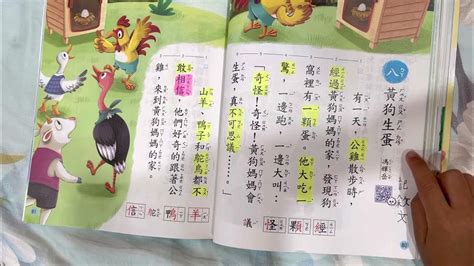 八 黃狗生蛋
馮輝岳
有一天，公雞散步時，
經過黃狗媽媽的家，發現狗
窩裡有一顆蛋。他大吃一
驚，一邊跑，一邊大叫：
「奇怪！奇怪！黃狗媽媽會
生蛋，真不可思議……」
經 顆 怪 議
山羊、鴨子和鴕鳥都不
敢相信，他們好奇的跟著公
雞，來到黃狗媽媽的家。
羊 鴨 鴕 信
81